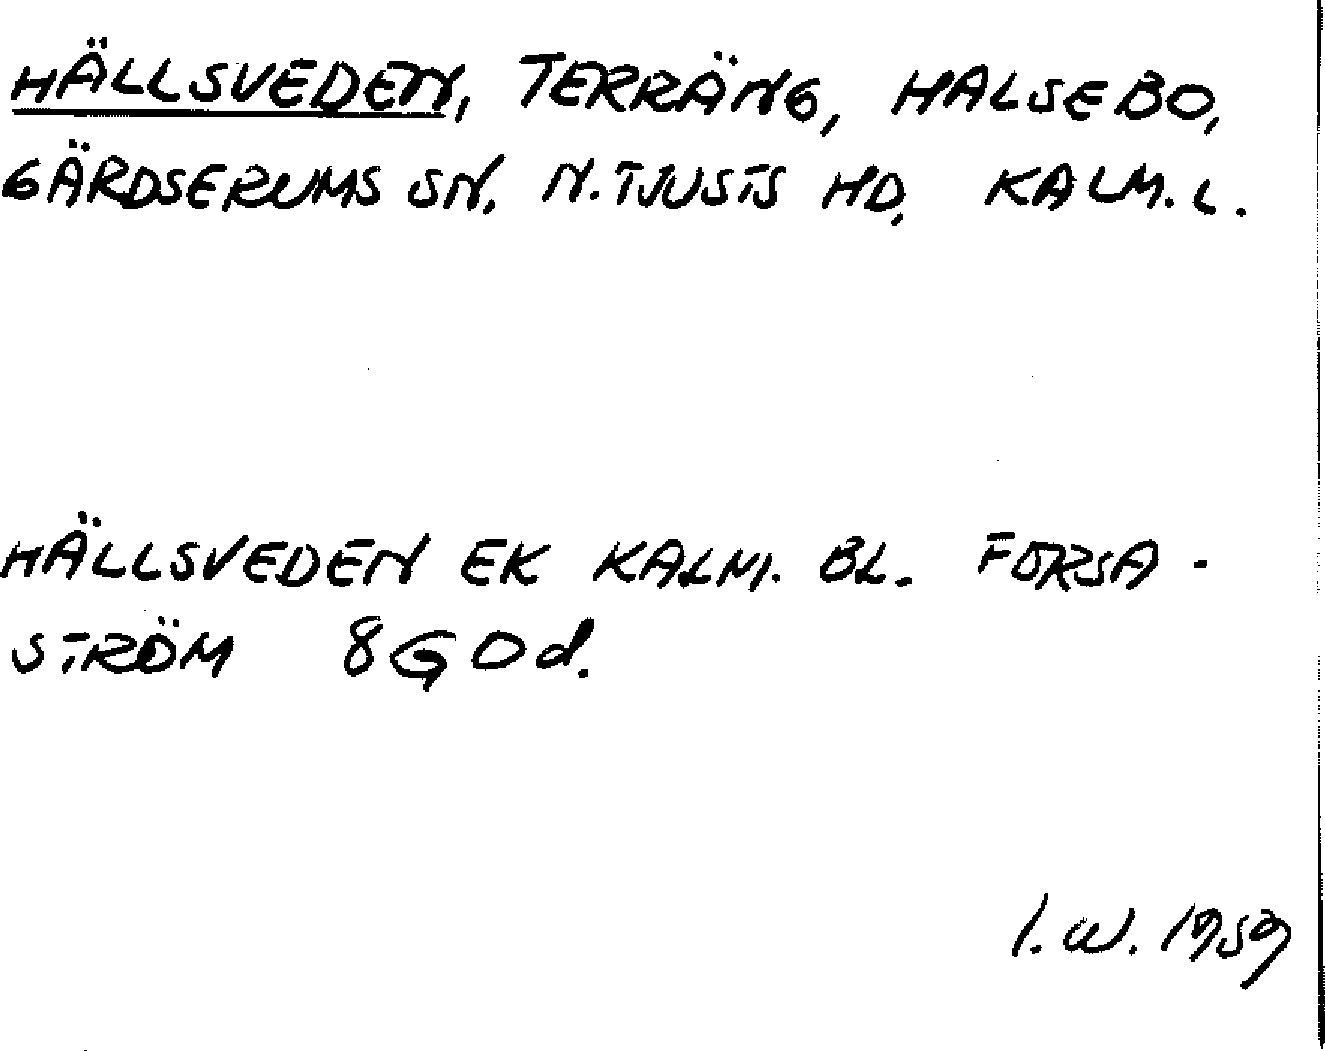 HÄLLSVEDEN, TERRÄNG, HALSEBO,
GÄRDSERUMS SN, N. TJUSTS HD, KALM. L.
HÄLLSVEDEN EK KALM. BL. FORSA-
STRÖM 8G0d.
I. W. 1959